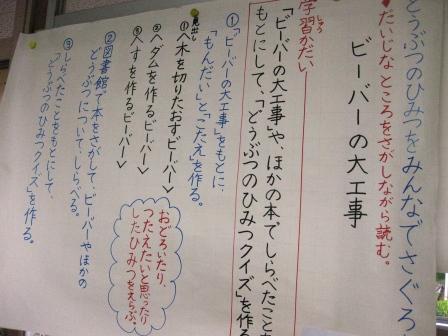 どうぶつのひみつをみんなでさぐろ
だいじなところをさがしながら読む。
ビーバーの大工事
学習かだい
「ビーバーの大工事」や、ほかの本でしらべたこと
もとにして、「どうぶつのひみつクイズ」を作
①「ビーバーの大工事」をもとに、
「もんだい」と「こたえ」を作る。
見出し
①〈木を切りたおすビーバー〉
②〈ダムを作るビーバー〉
③〈すを作るビーバー〉
おどろいたり、
つたえたいと思ったり
したひみつをえらぶ。
②図書館で本をさがして、ビーバーやほかの
どうぶつについて、しらべる。
③しらべたことをもとにして、
「どうぶつのひみつクイズ」を作る。